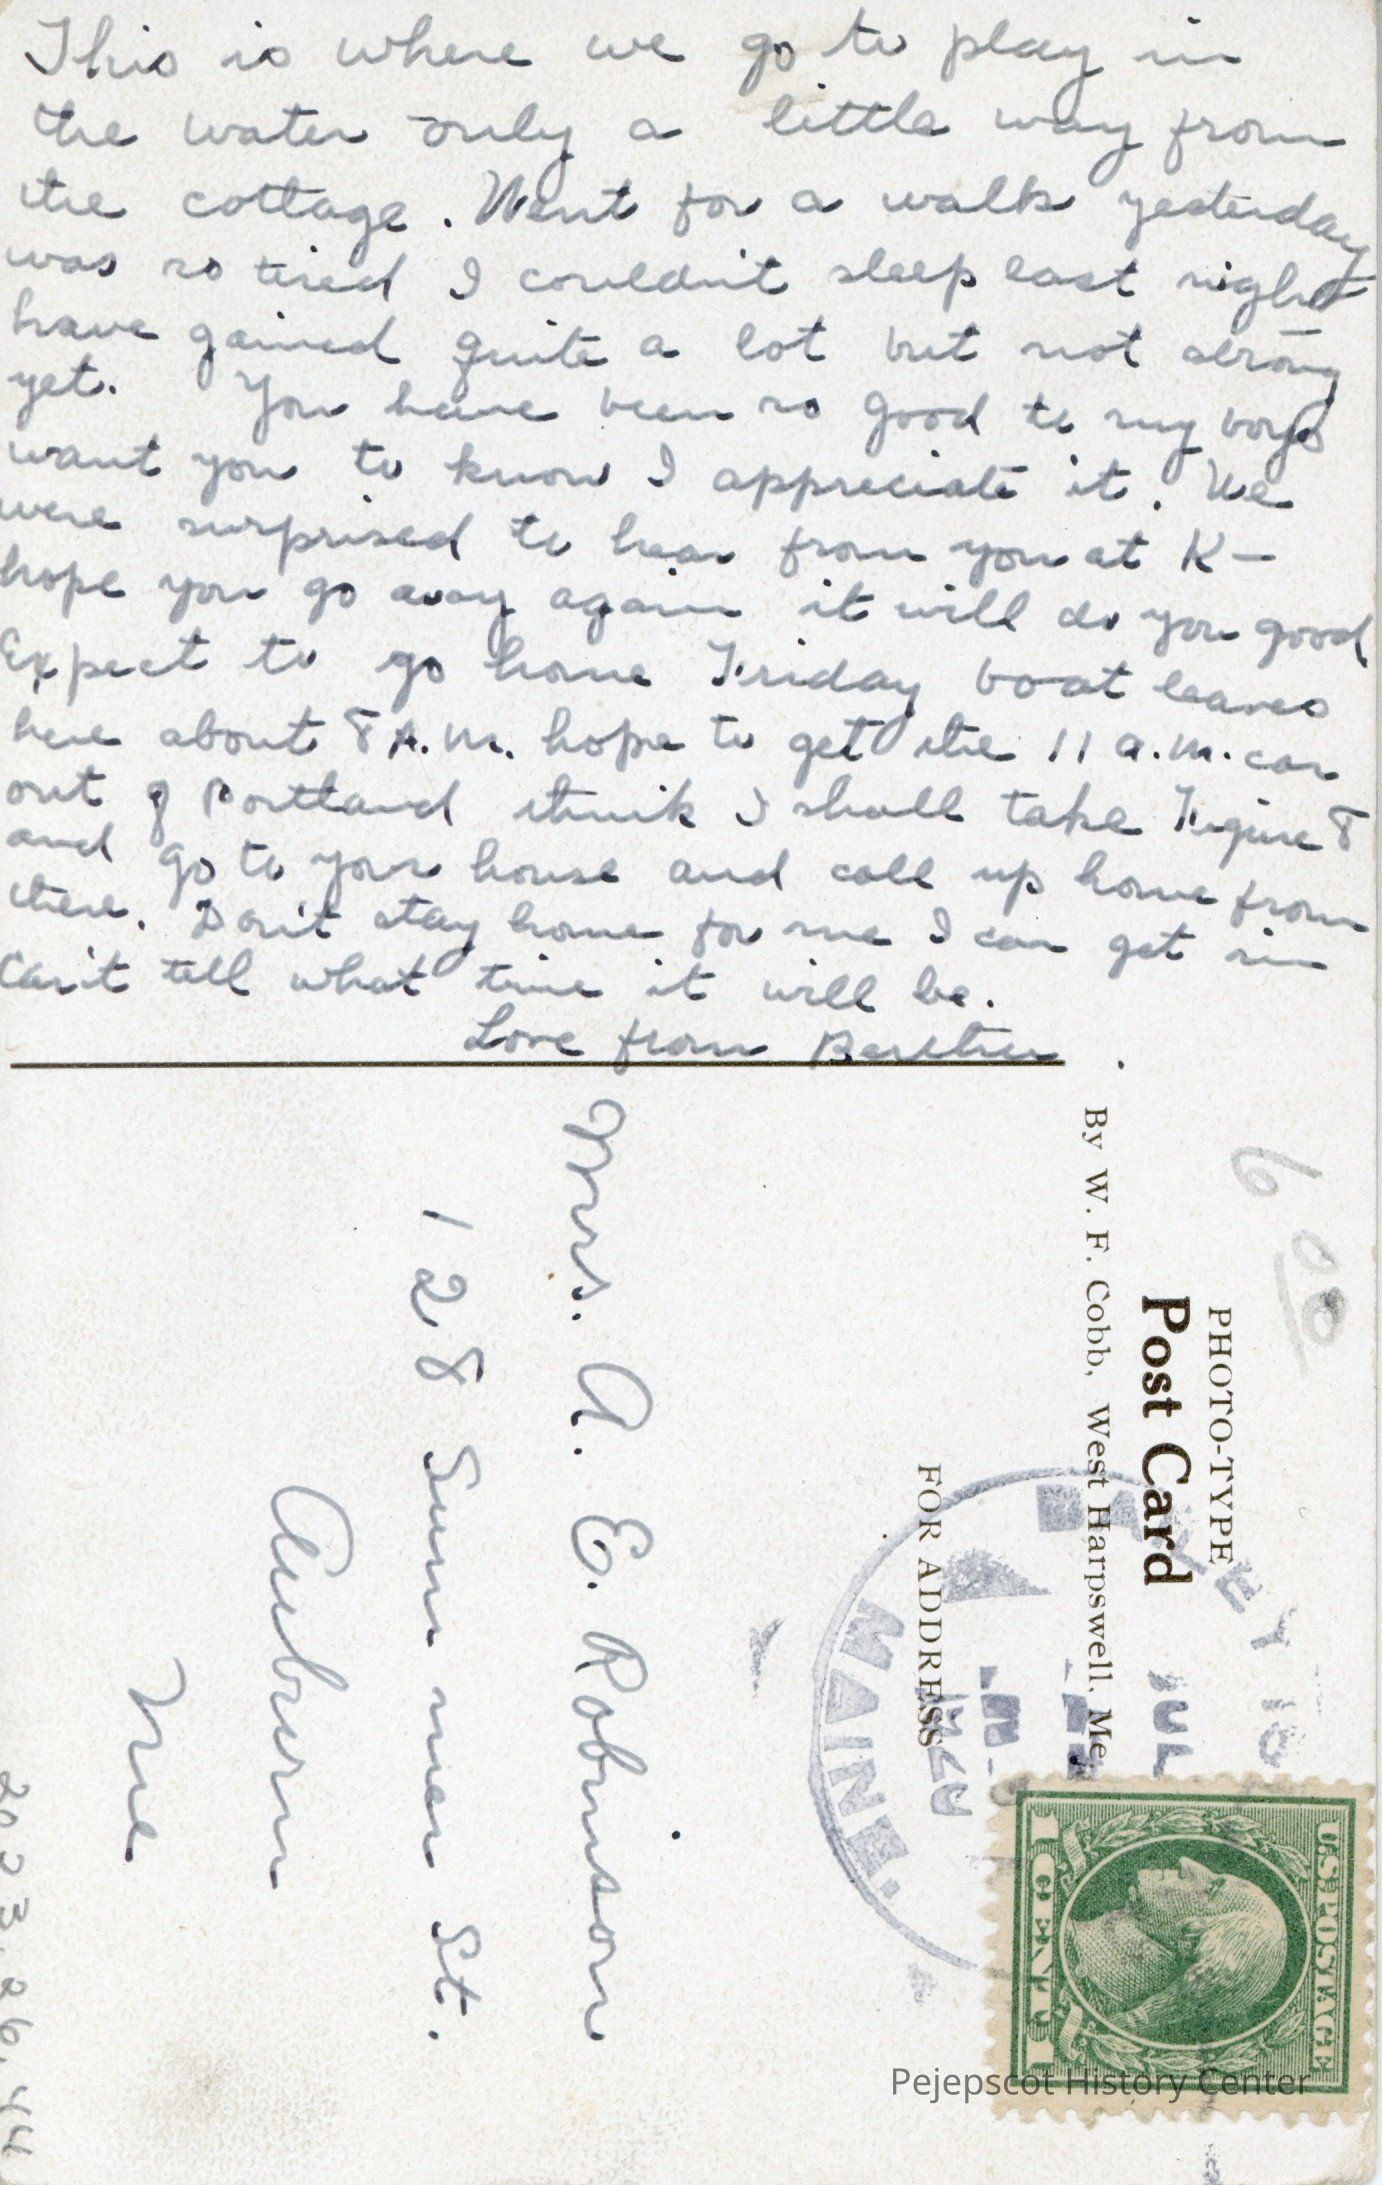 This is where we go to play in
the water only a little way from
the cottage. Went for a walk yesterday
was so tired I couldn't sleep last night
have gained quite a lot but not strong
yet. You have been so good to my boys
want you to know I appreciate it. We
were surprised to hear from you at K—
hope you go away again it will do you good
Expect to go home Friday boat leaves
here about 8 A.M. hope to get the 11 a.m. car
out of Portland think I shall take Figure 8
and go to your house and call up home from
there. Don't stay home for me I can get in
Can't tell what time it will be.
Love from
PHOTO-TYPE
Post Card
By W. F. Cobb, West Harpswell, Me.
FOR ADDRESS
MAINE.
U.S. POSTAGE
1 CENT 1
Mrs. A. E. Robinson
128 Summer St.
Auburn
Me
2023.26.44
Pejepscot History Center